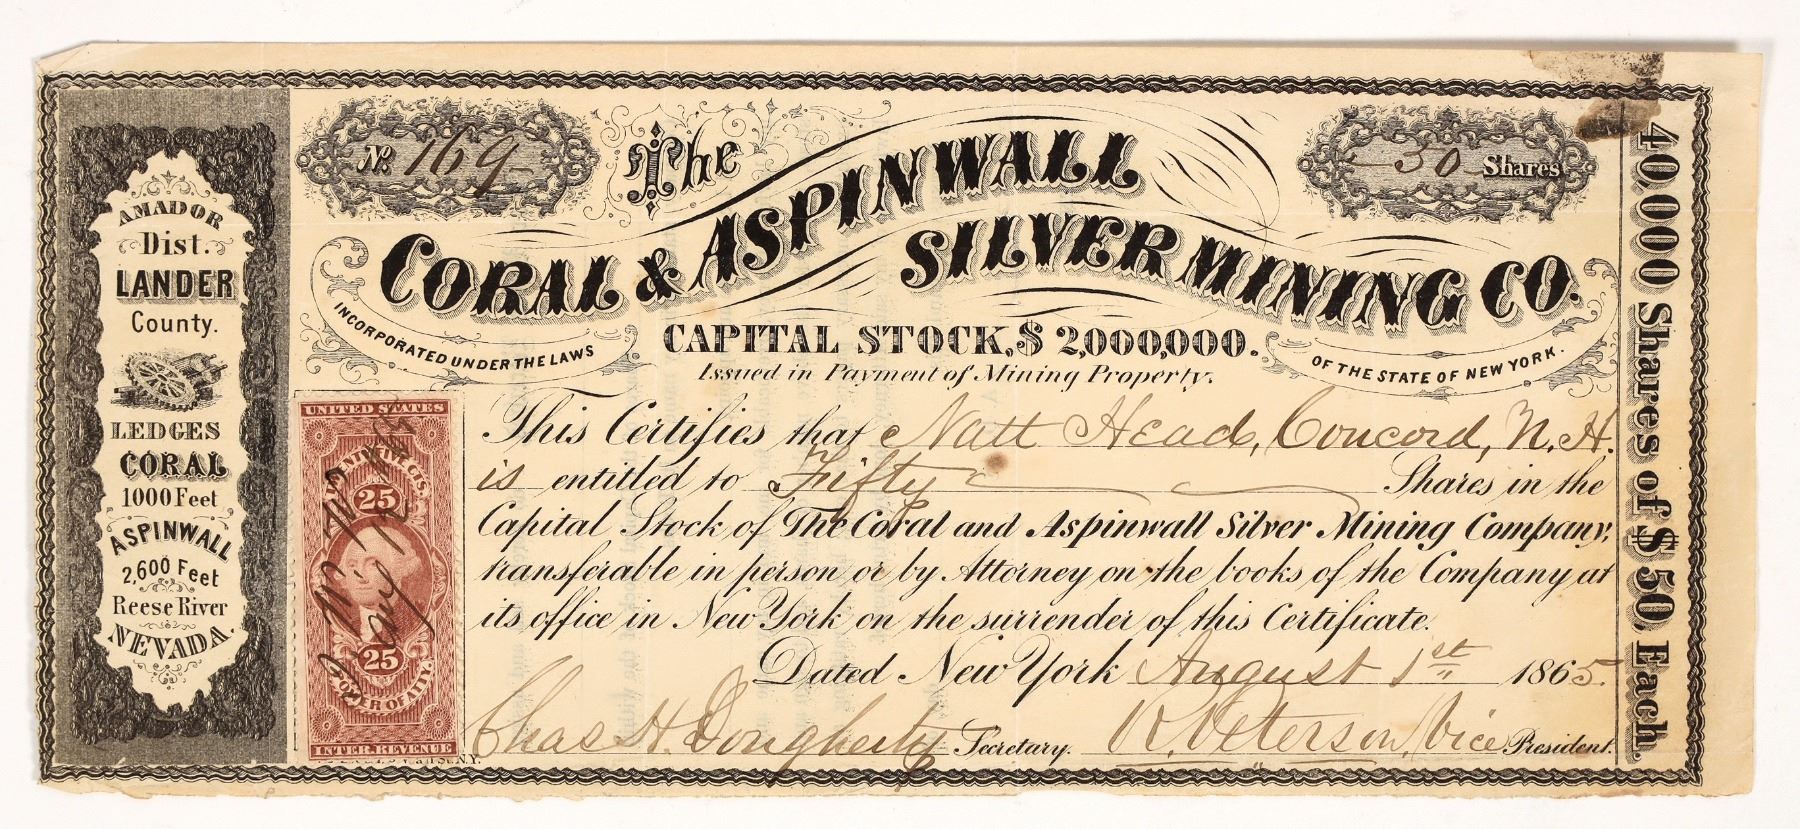 No. 169
The
50 Shares
CORAL & ASPINWALL
SILVER MINING CO.
INCORPORATED UNDER THE LAWS
OF THE STATE OF NEW YORK.
CAPITAL STOCK, $2,000,000.
Issued in Payment of Mining Property.
This Certifies that Natt Head, Concord, N. H.
is entitled to Fifty Shares in the
Capital Stock of The Coral and Aspinwall Silver Mining Company,
transferable in person or by Attorney on the books of the Company at
its office in New York on the surrender of this Certificate.
Dated New York August 1st 1865.
Chas H. Dougherty Secretary.
R. Peterson, Vice President.
AMADOR
Dist.
LANDER
County.
LEDGES
CORAL
1000 Feet
ASPINWALL
2,600 Feet
Reese River
NEVADA.
UNITED STATES
TWENTY FIVE CTS.
25
25
POWER OF ATT'Y.
INTER. REVENUE
40,000 Shares of $50 Each.